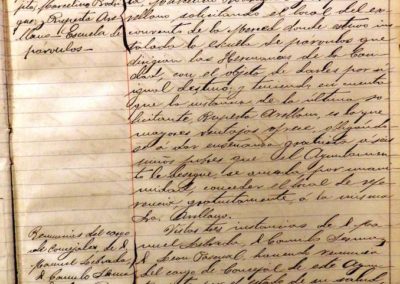 pita, Marcelina Rodri
guez, Ruperta Are
llano = Escuela de
parvulos =
llano solicitando el local del ex
convento de la Merced donde estuvo ins
talada la escuela de parvulos que
dirigian las Hermanas de la Cari
dad, con el objeto de darles por si
igual destino; y teniendo en cuenta
que la instancia de la ultima so
licitante Ruperta Arellano, es la que
mayores ventajas ofrece, obligando
se a dar enseñanza gratuita a seis
niños pobres que el Ayuntamien
to le designe, se acuerda por unani
midad, conceder el local de refe
rencia gratuitamente a la misma
Sra. Arellano.
Renuncias del cargo
de Concejales de D.
Manuel Estrada,
D. Camilo
Vistas las instancias de D. Ma
nuel Estrada, D. Camilo
D. Leon Pascual, haciendo renuncia
del cargo de Concejal de este Ayun
estado de su salud